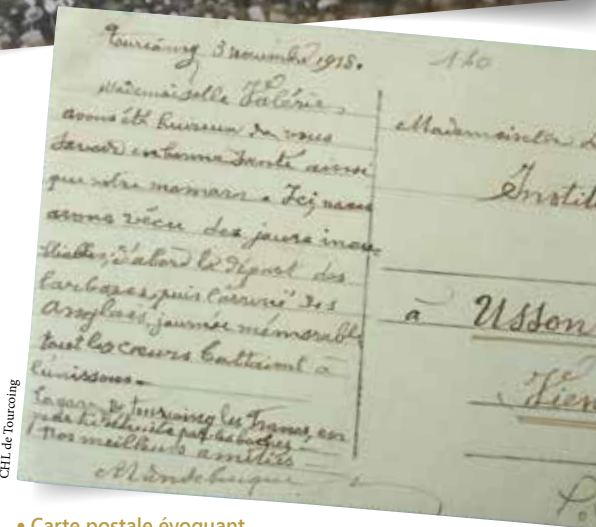 Tourcoing 3 novembre 1918.
140
Mademoiselle Valérie,
avons été heureux de vous
savoir en bonne santé ainsi
que votre maman. Ici nous
avons vécu des jours inou-
bliables, d'abord le départ des
barbares, puis l'arrivé des
Anglais, journée mémorable
tout les cœurs battaient à
l'unissons.
La gare de tourcoing les Francs, en
partie détruite par les boches.
Nos meilleurs amitiés
Mademoiselle
Instit
à Usson
Vien
CHL de Tourcoing
• Carte postale évoquant